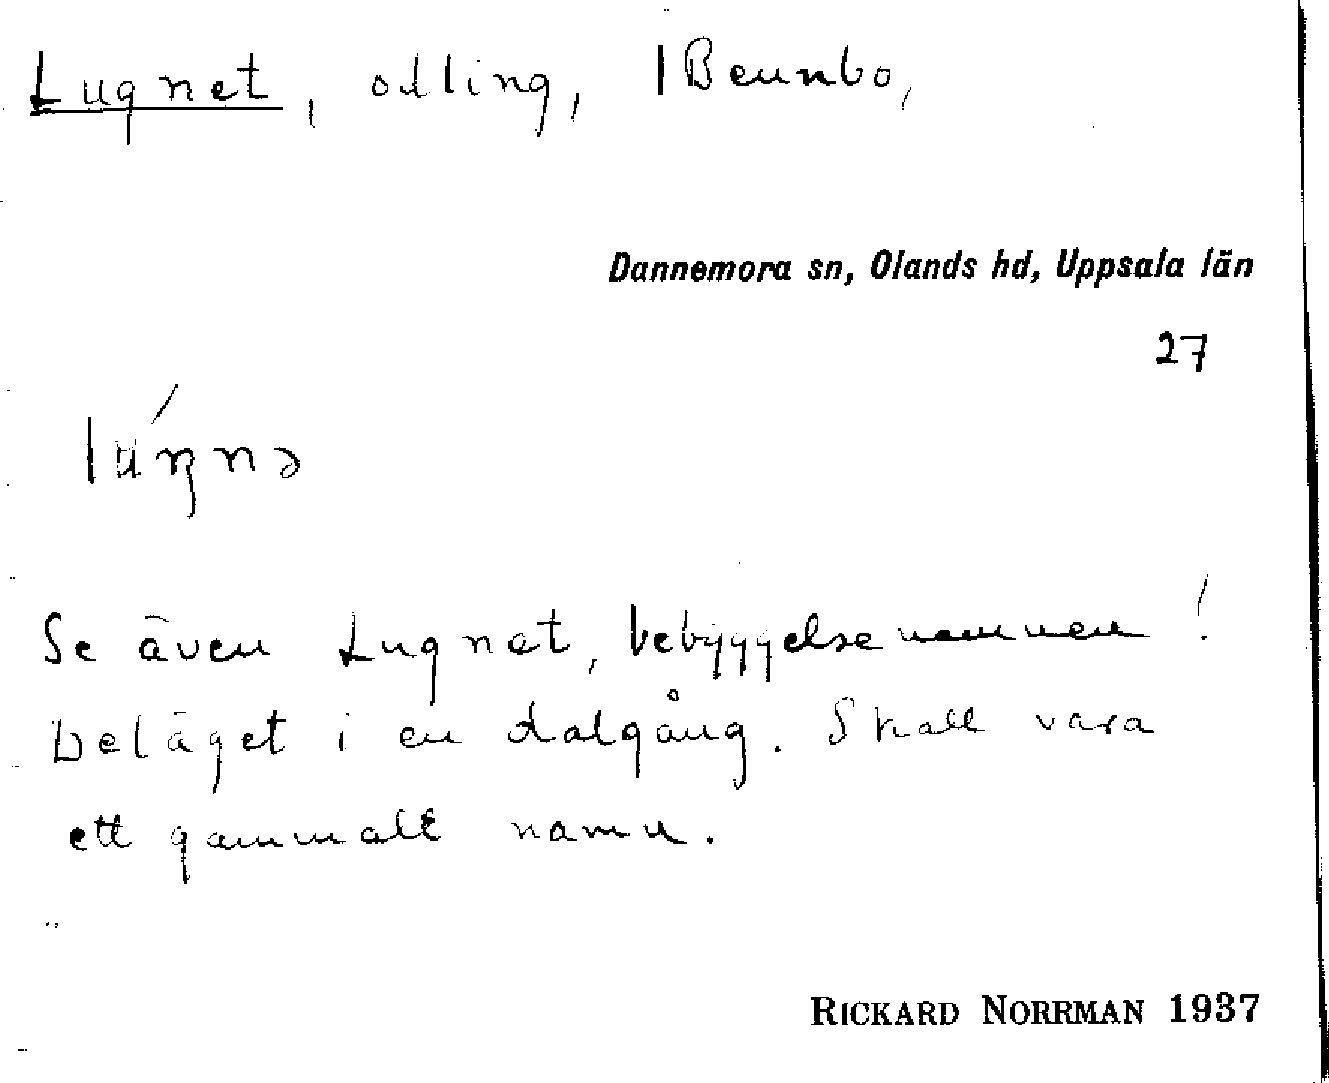 Lugnet, odling, 1 Bennbo,
Dannemora sn, Olands hd, Uppsala län
27
lúŋnə
Se även Lugnet, bebyggelsenamnen!
Beläget i en dalgång. Skall vara
ett gammalt namn.
RICKARD NORRMAN 1937